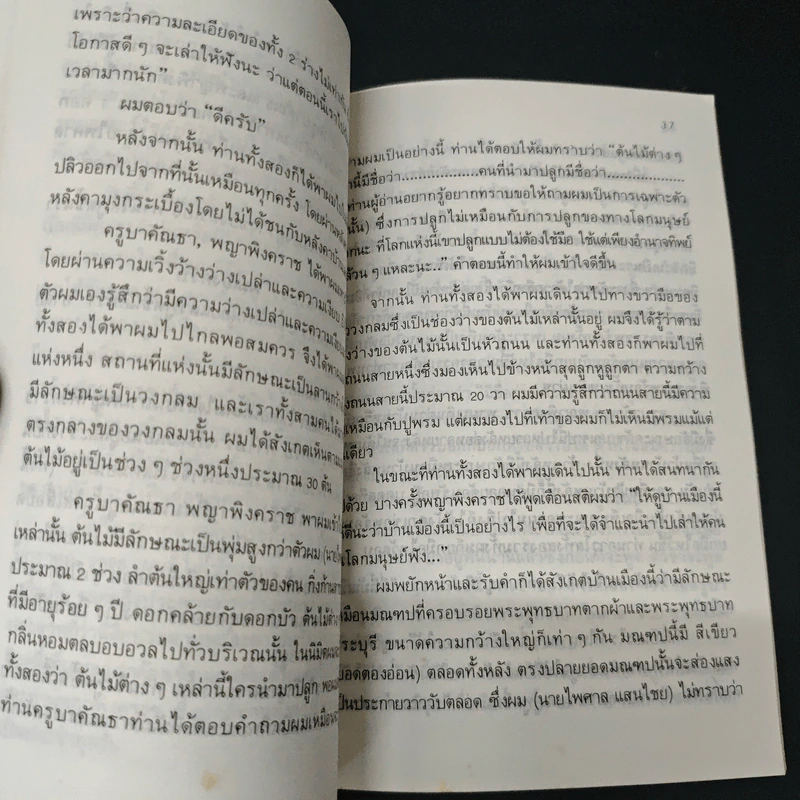 เพราะว่าความละเอียดของทั้ง 2 ร่างไม่เท่ากัน
โอกาสดี ๆ จะเล่าให้ฟังนะ ว่าแต่ตอนนี้เรา
เวลามากนัก”
ผมตอบว่า “ดีครับ”
หลังจากนั้น ท่านทั้งสองก็ได้พาผม
ปลิวออกไปจากที่นั้นเหมือนทุกครั้ง โดยผ่าน
หลังคามุงกระเบื้องโดยไม่ได้ชนกับหลังคา
ครูบาคัณธา, พญาพิงคราช ได้พาผม
โดยผ่านความเวิ้งว้างว่างเปล่าและความเงียบ
ตัวผมเองรู้สึกว่ามีความว่างเปล่าและความเงียบ
ทั้งสองได้พาผมไปไกลพอสมควร จึงได้พา
แห่งหนึ่ง สถานที่แห่งนั้นมีลักษณะเป็นลานกว้าง
มีลักษณะเป็นวงกลม และเราทั้งสามคนได้
ตรงกลางของวงกลมนั้น ผมได้สังเกตเห็น
ต้นไม้อยู่เป็นช่วง ๆ ช่วงหนึ่งประมาณ 30 ต้น
ครูบาคัณธา พญาพิงคราช พาผมเข้า
เหล่านั้น ต้นไม้มีลักษณะเป็นพุ่มสูงกว่าตัวผม
ประมาณ 2 ช่วง ลำต้นใหญ่เท่าตัวของคน กิ่งก้าน
ที่มีอายุร้อย ๆ ปี ดอกคล้ายกับดอกบัว ต้นไม้
กลิ่นหอมตลบอบอวลไปทั่วบริเวณนั้น ในนิมิต
ทั้งสองว่า ต้นไม้ต่าง ๆ เหล่านี้ใครนำมาปลูก
ท่านครูบาคัณธาท่านได้ตอบคำถามผมเหมือน
37
ถามผมเป็นอย่างนี้ ท่านได้ตอบให้ผมทราบว่า “ต้นไม้ต่าง ๆ
นี้มีชื่อว่า.....................คนที่นำมาปลูกมีชื่อว่า.....................
ท่านผู้อ่านอยากรู้อยากทราบขอให้ถามผมเป็นการเฉพาะตัว
นั้น) ซึ่งการปลูกไม่เหมือนกับการปลูกของทางโลกมนุษย์
กนะ ที่โลกแห่งนี้เขาปลูกแบบไม่ต้องใช้มือ ใช้แต่เพียงอำนาจทิพย์
ล้วน ๆ แหละนะ..” คำตอบนี้ทำให้ผมเข้าใจดีขึ้น
จากนั้น ท่านทั้งสองได้พาผมเดินวนไปทางขวามือของ
วงกลมซึ่งเป็นช่องว่างของต้นไม้เหล่านั้นอยู่ ผมจึงได้รู้ว่าตาม
งว่างของต้นไม้นั้นเป็นหัวถนน และท่านทั้งสองก็พาผมไปที่
ถนนสายหนึ่งซึ่งมองเห็นไปข้างหน้าสุดลูกหูลูกตา ความกว้าง
งถนนสายนี้ประมาณ 20 วา ผมมีความรู้สึกว่าถนนสายนี้มีความ
เหมือนกับปูพรม แต่ผมมองไปที่เท้าของผมก็ไม่เห็นมีพรมแม้แต่
เดียว
ในขณะที่ท่านทั้งสองได้พาผมเดินไปนั้น ท่านได้สนทนากัน
ด้วย บางครั้งพญาพิงคราชได้พูดเตือนสติผมว่า “ให้ดูบ้านเมืองนี้
ดีนะว่าบ้านเมืองนี้เป็นอย่างไร เพื่อที่จะได้จำและนำไปเล่าให้คน
โลกมนุษย์ฟัง...”
ผมพยักหน้าและรับคำก็ได้สังเกตบ้านเมืองนี้ว่ามีลักษณะ
มือนมณฑปที่ครอบรอยพระพุทธบาทตากผ้าและพระพุทธบาท
ระบุรี ขนาดความกว้างใหญ่ก็เท่า ๆ กัน มณฑปนี้มี สีเขียว
ยอดตองอ่อน) ตลอดทั้งหลัง ตรงปลายยอดมณฑปนั้นจะส่องแสง
ป็นประกายวาววับตลอด ซึ่งผม (นายไพศาล แสนไชย) ไม่ทราบว่า